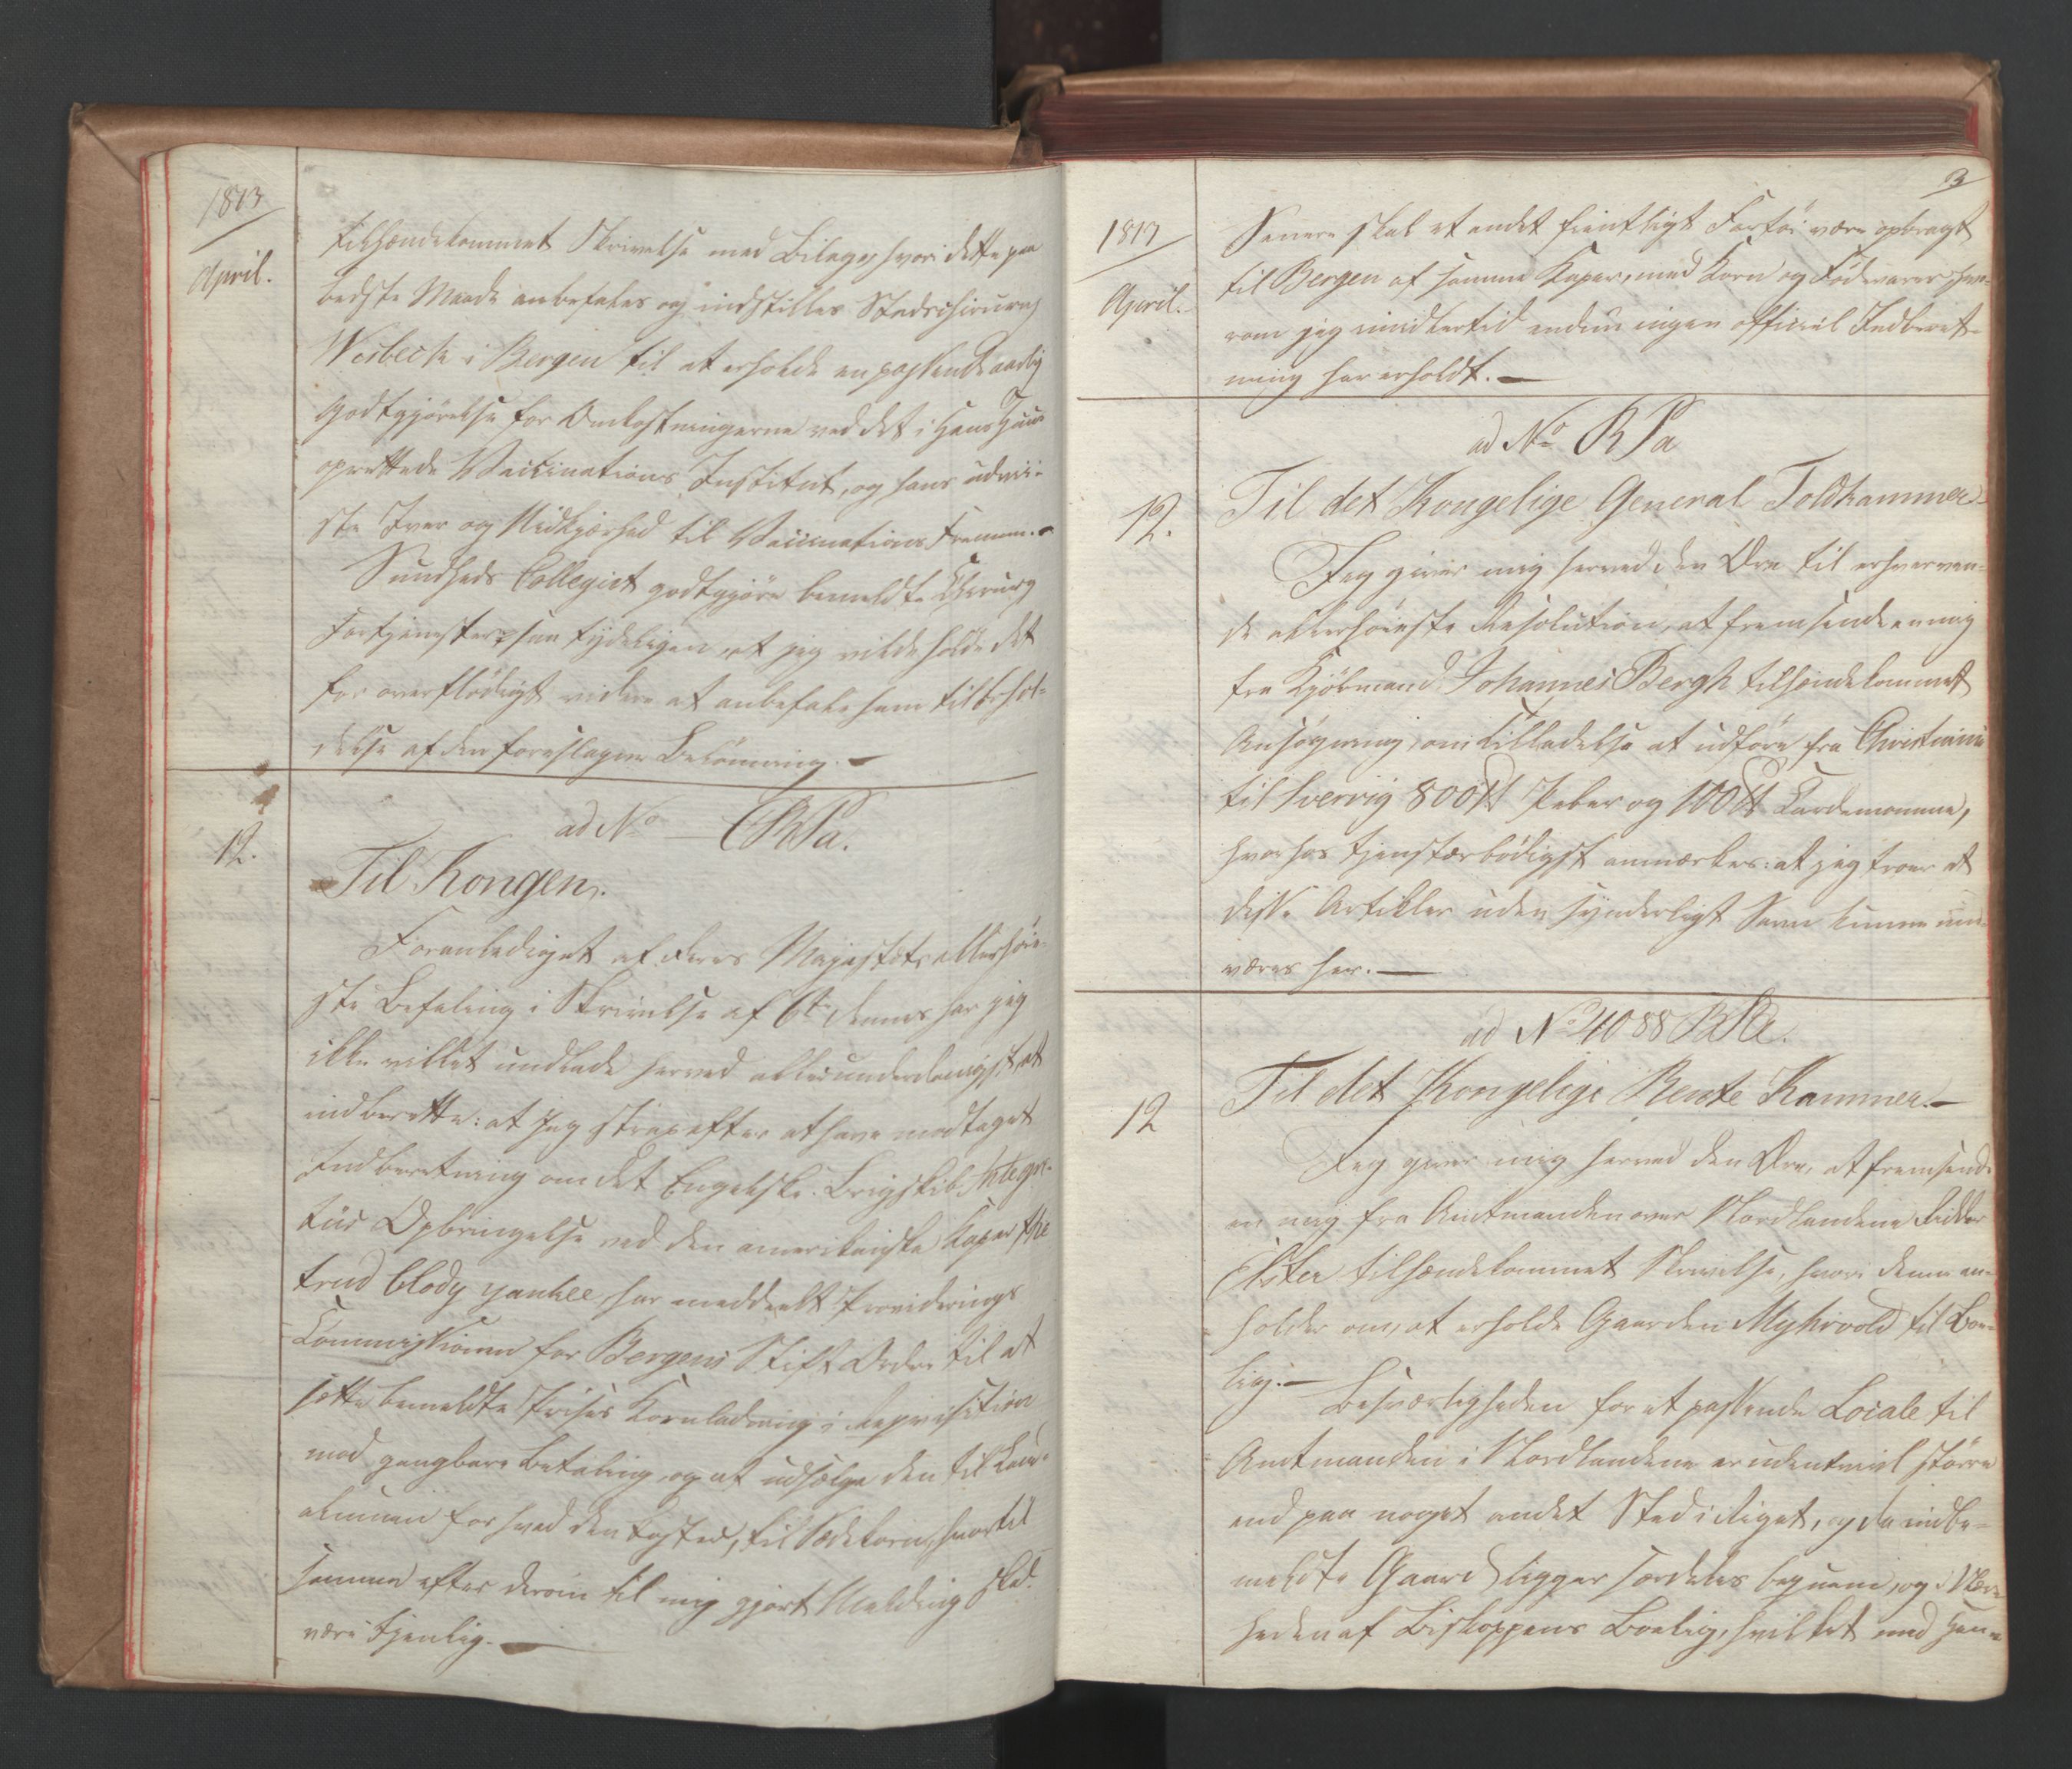 1813
April.
tilhændekommet Skrivelse med Bilage, hvori dette paa
bedste Maade anbefales og indstilles Stadschirurg
Wesbech i Bergen til at erholde en passende aarlig
Godtgjörelse for Omkostningerne ved det i Hans Huus
oprettede Vaccinations Institut, og hans udvii-
ste Iver og Nidkjærhed til Vaccinations Fremme. -
Sundheds Collegiet godtgjöre bemeldte Chirurg
Fortjenester saa tydeligen, at jeg vilde holde det
for overflödigt videre at anbefale ham til Erhol-
delse af den foreslagne Belönning. -
ad No - RPa.
12.
Til Kongen.
Foranlediget af Deres Majestæts allerhöie-
ste Befaling i Skrivelse af 6te dennes har jeg
ikke villet undlade herved allerunderdanigst, at
indberette: at jeg strax efter at have modtaget
Indberetning om det Engelske Brigskib Integri-
tüs Opbringelse ved den amerikanske Kaper the
trud blody yankee, har meddeelt Provideerings
Commissionen for Bergens Stift Ordre til at
sætte bemeldte Prises Kornladning i Reqvisition
mod gangbare Betaling, og at udsælge den til Land-
almuen for hvad den kostede, til Sædekorn, hvortil
samme efter derom til mig gjort Melding skal
være tjenlig. -
3
1813
April.
Senere skal et andet fiendtligt Fartöi være opbragt
til Bergen af samme Kaper, med Korn og Födevarer hvo-
rom jeg imidlertid endnu ingen officiel Indberet-
ning har erholdt. -
ad No RPa
12.
Til det Kongelige General Toldkammer
Jeg giver mig herved den Ære til erhverven-
de allerhöieste Resolution, at fremsende en mig
fra Kjöbmand Johannes Bergh tilhændekommet
Ansögning, om Tilladelse at udföre fra Christiania
til Sverrig 800 ℔ Peber og 100 ℔ Cardemomme,
hvorhos tjenstærbödigst anmærkes: at jeg troer at
disse Artikler uden synderligt Savn kunne und-
væres her. -
ad No 4088 RPa.
12
Til det Kongelige Rente Kammer. -
Jeg giver mig herved den Ære, at fremsende
en mig fra Amtmanden over Nordlandene Ridder
Elster tilhændekommet Skrivelse, hvori denne an-
holder om, at erholde Gaarden Myhrvold til Boe-
lig. -
Besværligheden for et passende Locale til
Amtmanden i Nordlandene er udentvivl större
end paa noget andet Sted i Riget, og da indbe-
meldte Gaard ligger særdeles beqvem, og i Nær-
heden af Biskoppens Boelig, hvilket med Hen-